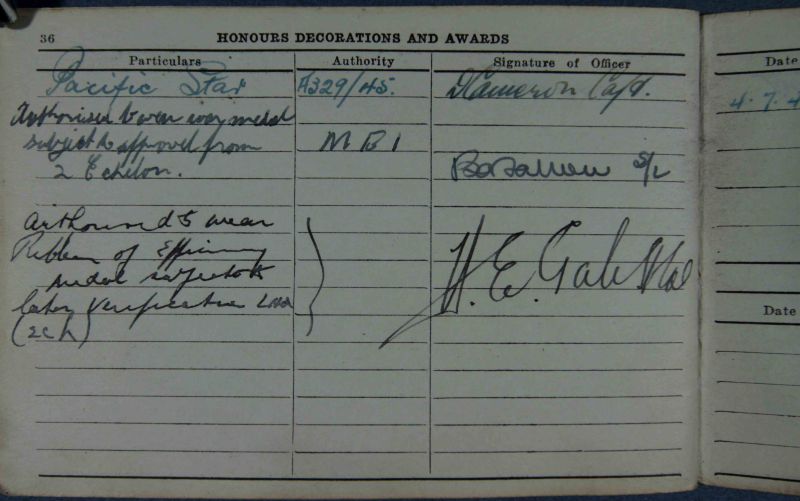 36 HONOURS DECORATIONS AND AWARDS
Particulars Authority Signature of Officer Date
Pacific Star A329/45. Cameron Capt. 4.7.4
Authorised to wear war medal
subject to approval from M B 1
2 Echelon. S/L
Authorised to wear
Ribbon of Efficiency
medal subject to H. E. Gale
later verification
(2ech)
Date